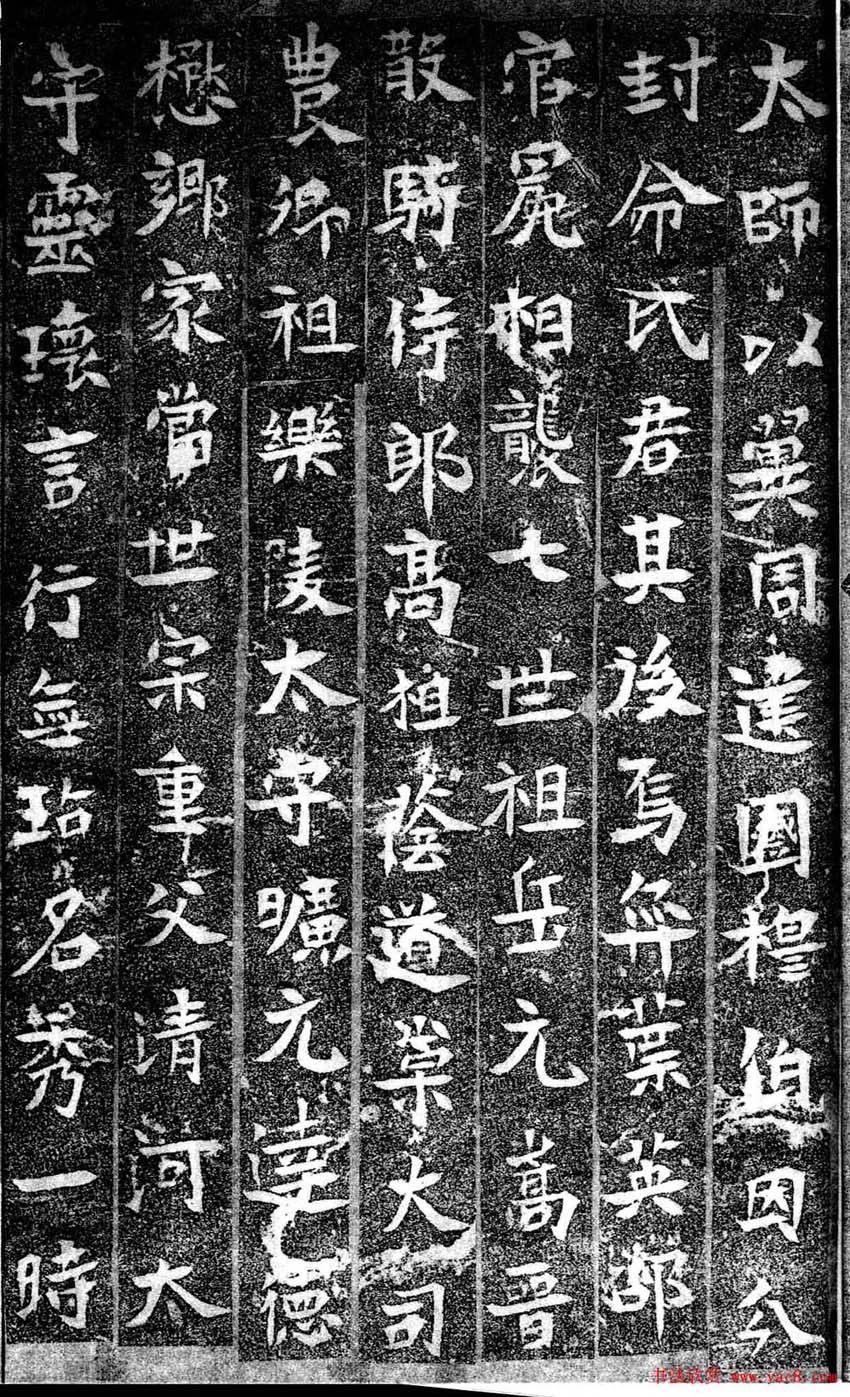 太師以翼周建國穆伯因分
封命氏君其後焉弈葉英邵
冠冕相襲七世祖岳元嵩晉
散騎侍郎高祖蔭道榮大司
農卿祖樂陵太守曠元達德
懋鄉家當世宗重父清河太
守靈瓌言行無玷名秀一時
书法欣赏 www.yac8.com